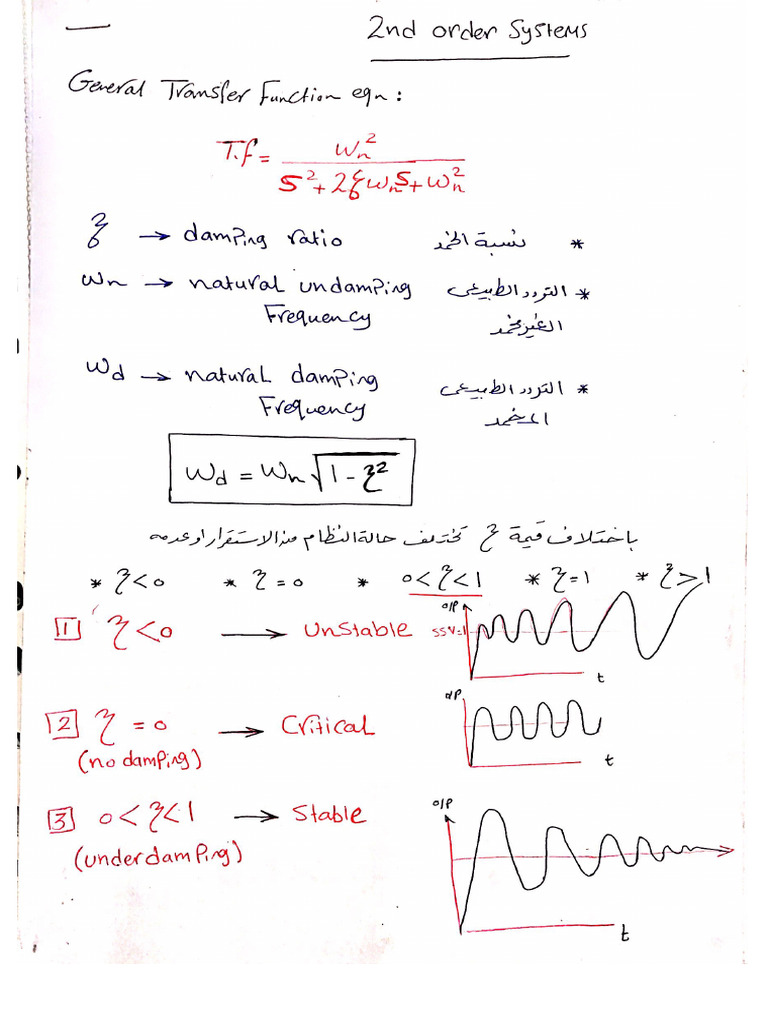 2nd order Systems
General Transfer Function eqn :
T.f = ωn² / (S² + 2ξωnS + ωn²)
ξ → damping ratio * نسبة الخمد
ωn → natural undamping * التردد الطبيعى
Frequency الغير مخمد
ωd → natural damping * التردد الطبيعى
Frequency المخمد
ωd = ωn √(1 - ξ²)
باختلاف قيمة ξ تختلف حالة النظام من الاستقرار او عدمه
* ξ<0 * ξ=0 * 0<ξ<1 * ξ=1 * ξ>1
1 ξ<0 → Unstable
o/P
SSV=1
t
2 ξ=0 → Critical
(no damping)
o/P
t
3 0<ξ<1 → Stable
(under damping)
o/P
t